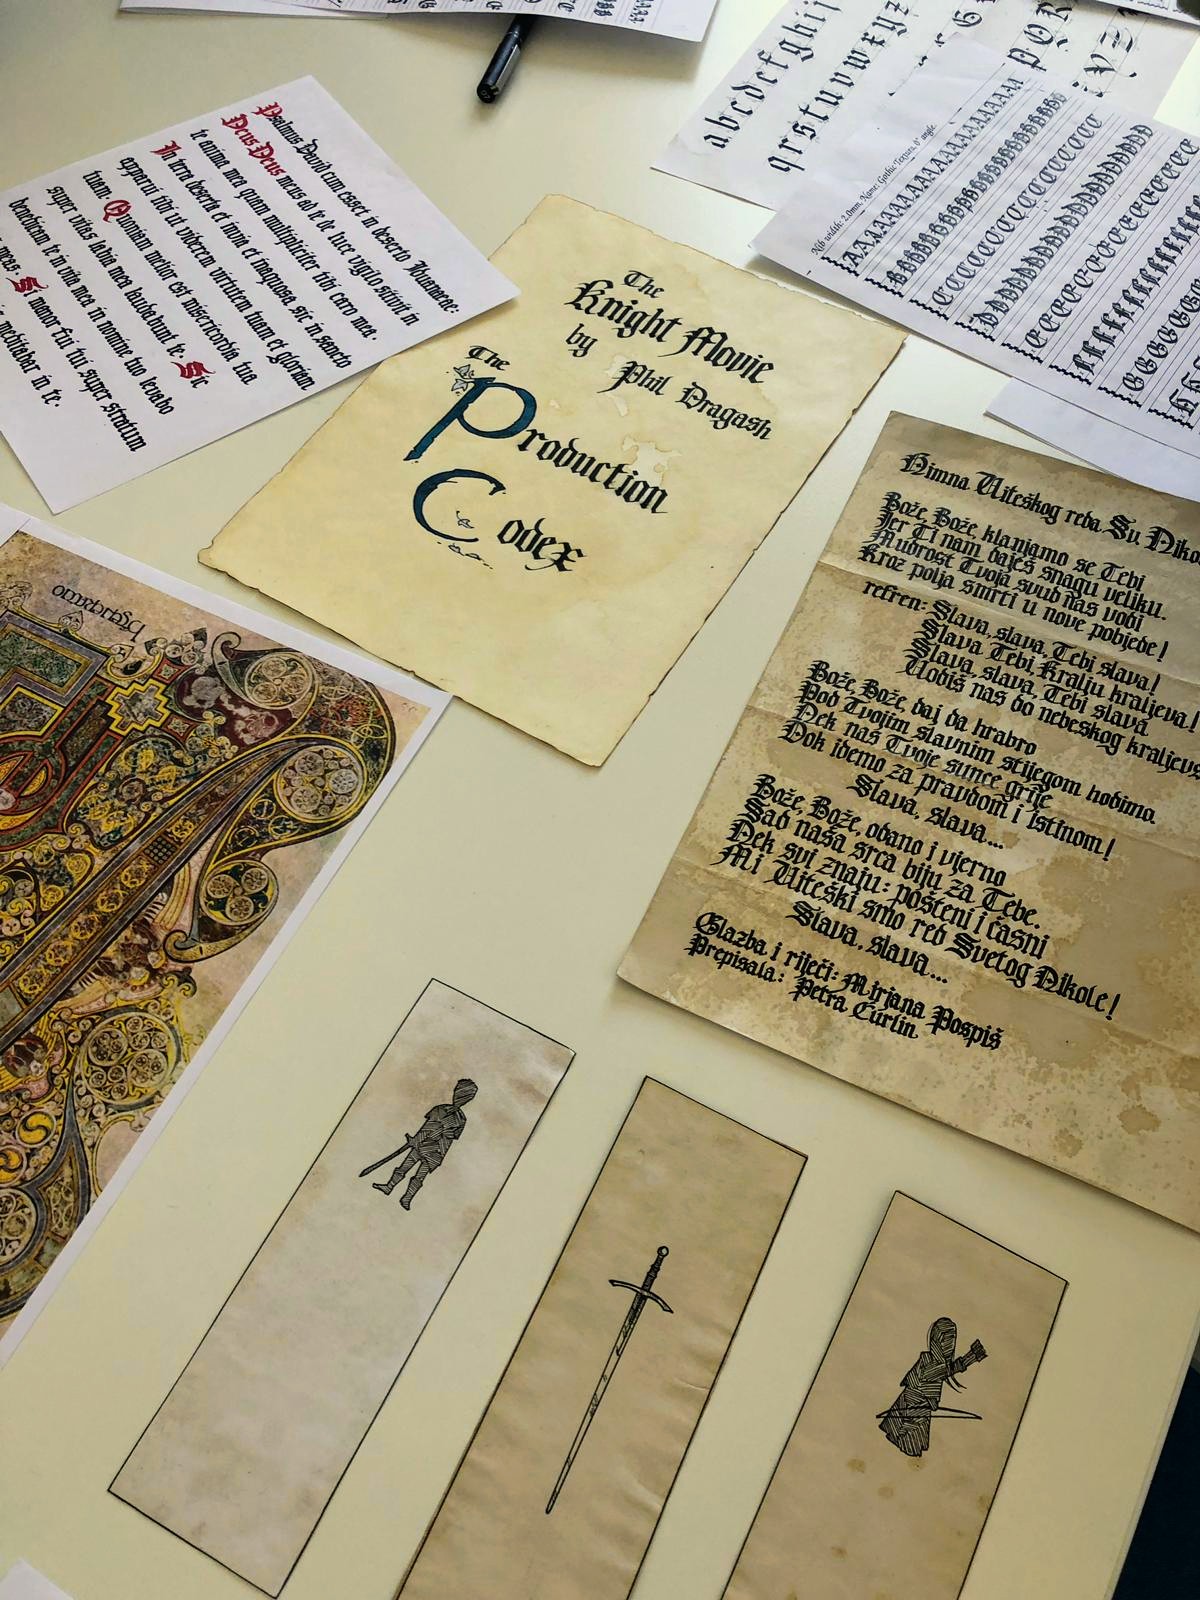 Psalmus David cum esset in deserto Idumaeae:
Deus Deus meus ad te de luce vigilo sitivit in
te anima mea quam multipliciter tibi caro mea.
In terra deserta et invia et inaquosa, sic in sancto
apparui tibi ut viderem virtutem tuam et gloriam
tuam. Quoniam melior est misericordia tua
super vitas labia mea laudabunt te. Sic
benedicam te in vita mea in nomine tuo levabo
meas. Si memor fui tui super stratum
meditabor in te.
The
Knight Movie
by Phil Dragash
The
Production
Codex
abcdefghij
qrstuvwxyz
Nib width: 2.0mm, Name: Gothic Textura, 0° angle.
Himna Viteškog reda Sv. Niko
Bože, Bože, klanjamo se Tebi
Jer Ti nam daješ snagu veliku.
Mudrost Tvoja svud nas vodi
Kroz polja smrti u nove pobjede!
refren: Slava, slava, Tebi slava!
Slava Tebi Kralju kraljeva!
Slava, slava, Tebi slava
Vodiš nas do nebeskog kraljevs
Bože, Bože, daj da hrabro
Pod Tvojim slavnim stijegom hodimo.
Nek nas Tvoje sunce grije
Dok idemo za pravdom i istinom!
Slava, slava...
Bože, Bože, odano i vjerno
Sad naša srca biju za Tebe.
Nek svi znaju: pošteni i časni
Mi Viteški smo red Svetog Nikole!
Slava, slava...
Glazba i riječi: Mirjana Pospiš
Prepisala: Petra Čurlin